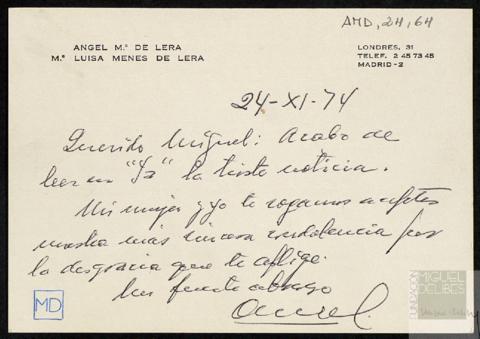 AMD, 24, 64
ANGEL M.ª DE LERA
M.ª LUISA MENES DE LERA
LONDRES, 31
TELEF. 2 45 73 45
MADRID - 2
24-XI-74
Querido Miguel: Acabo de
leer en "Ya" la triste noticia.
Mi mujer y yo te rogamos aceptes
nuestra más sincera condolencia por
la desgracia que te aflige.
Un fuerte abrazo
Angel.
MD
FUNDACIÓN
MIGUEL
DELIBES